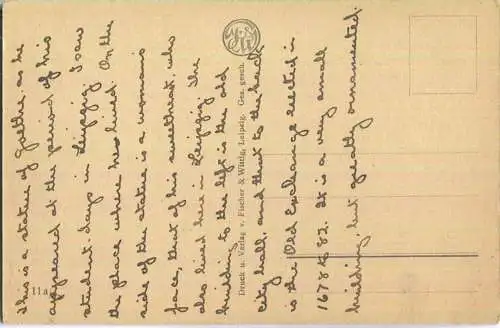 This is a statue of Goethe as he
appeared at the period of his
student-days in Leipzig. I saw
the place where he lived. On the
side of the statue is a womans
face, that of his sweetheart who
also lived here in Leipzig. The
building to the left is the old
city hall, and that to the back
is the Old Exchange erected in
1678 to 82. It is a very small
building, but greatly ornamented.
Druck u. Verlag v. Fischer & Wittig, Leipzig. Ges. gesch.
11a